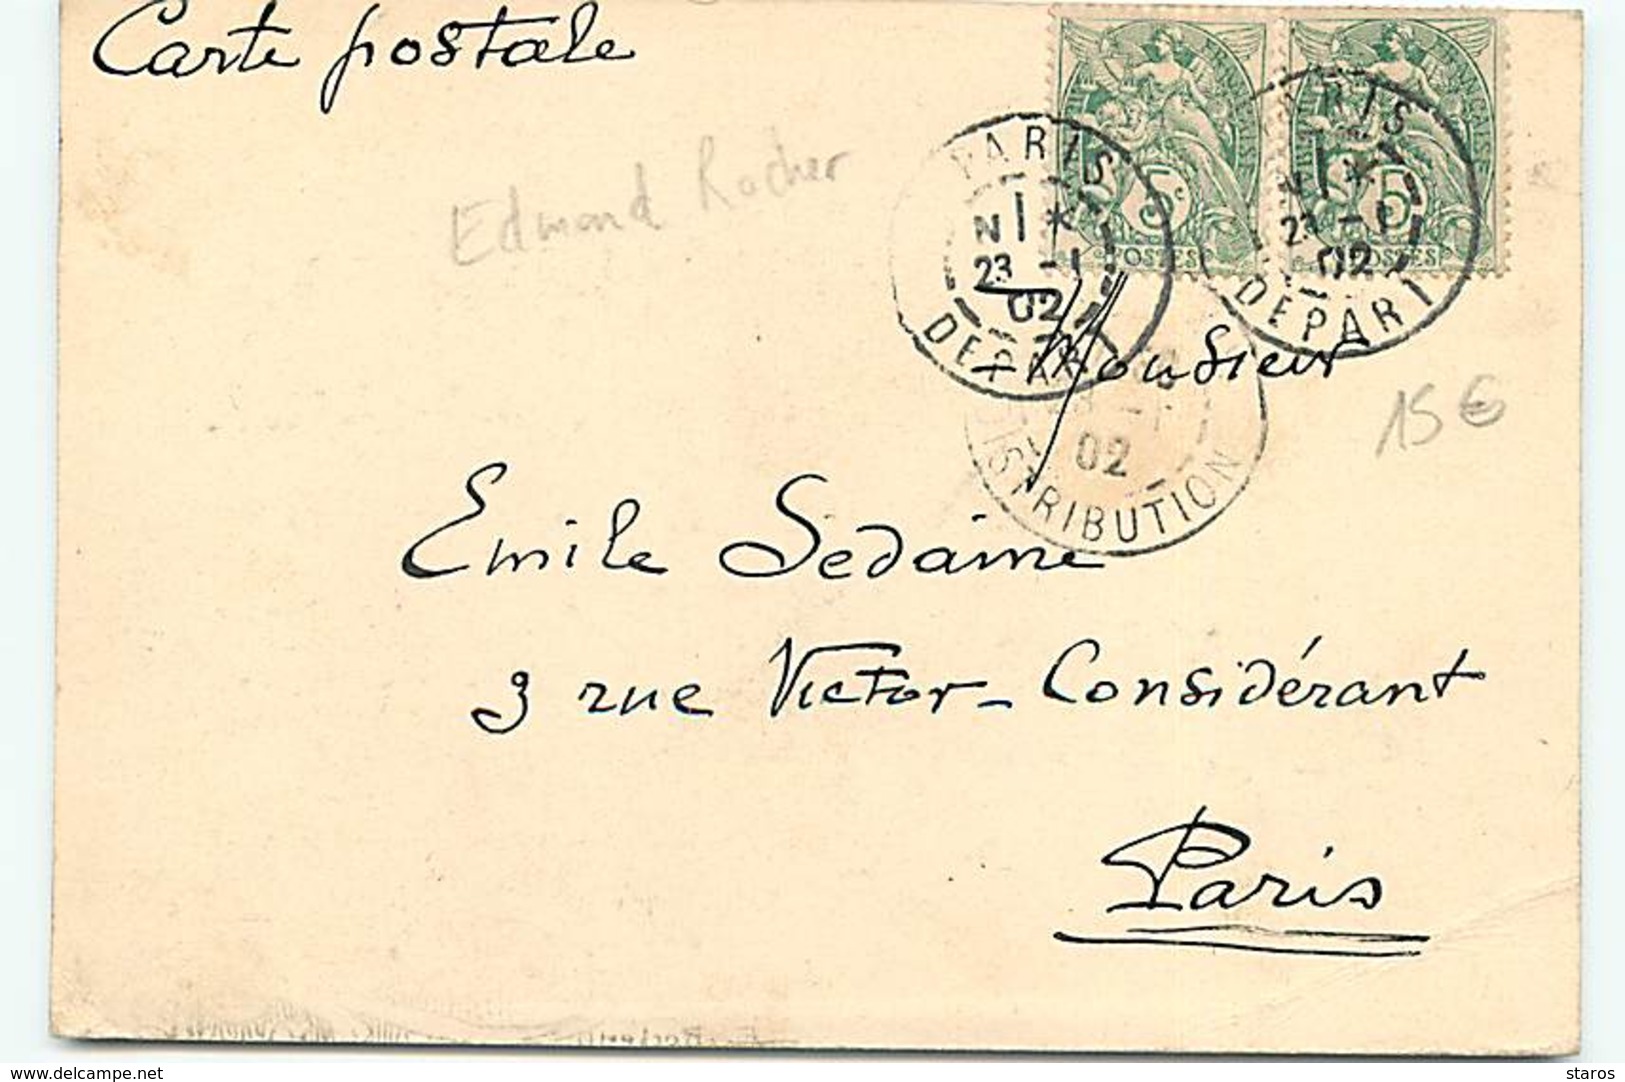 Carte postale
Edmond Rocher
FRANÇAISE
5c
POSTES
5
POSTES
PARIS
N 1 *
23 -1
02
DEPART
PARIS
1 *
23 -1
02
DEPART
Monsieur
02
DISTRIBUTION
15 €
Emile Sedaine
3 rue Victor-Considérant
Paris
www.delcampe.net
staros